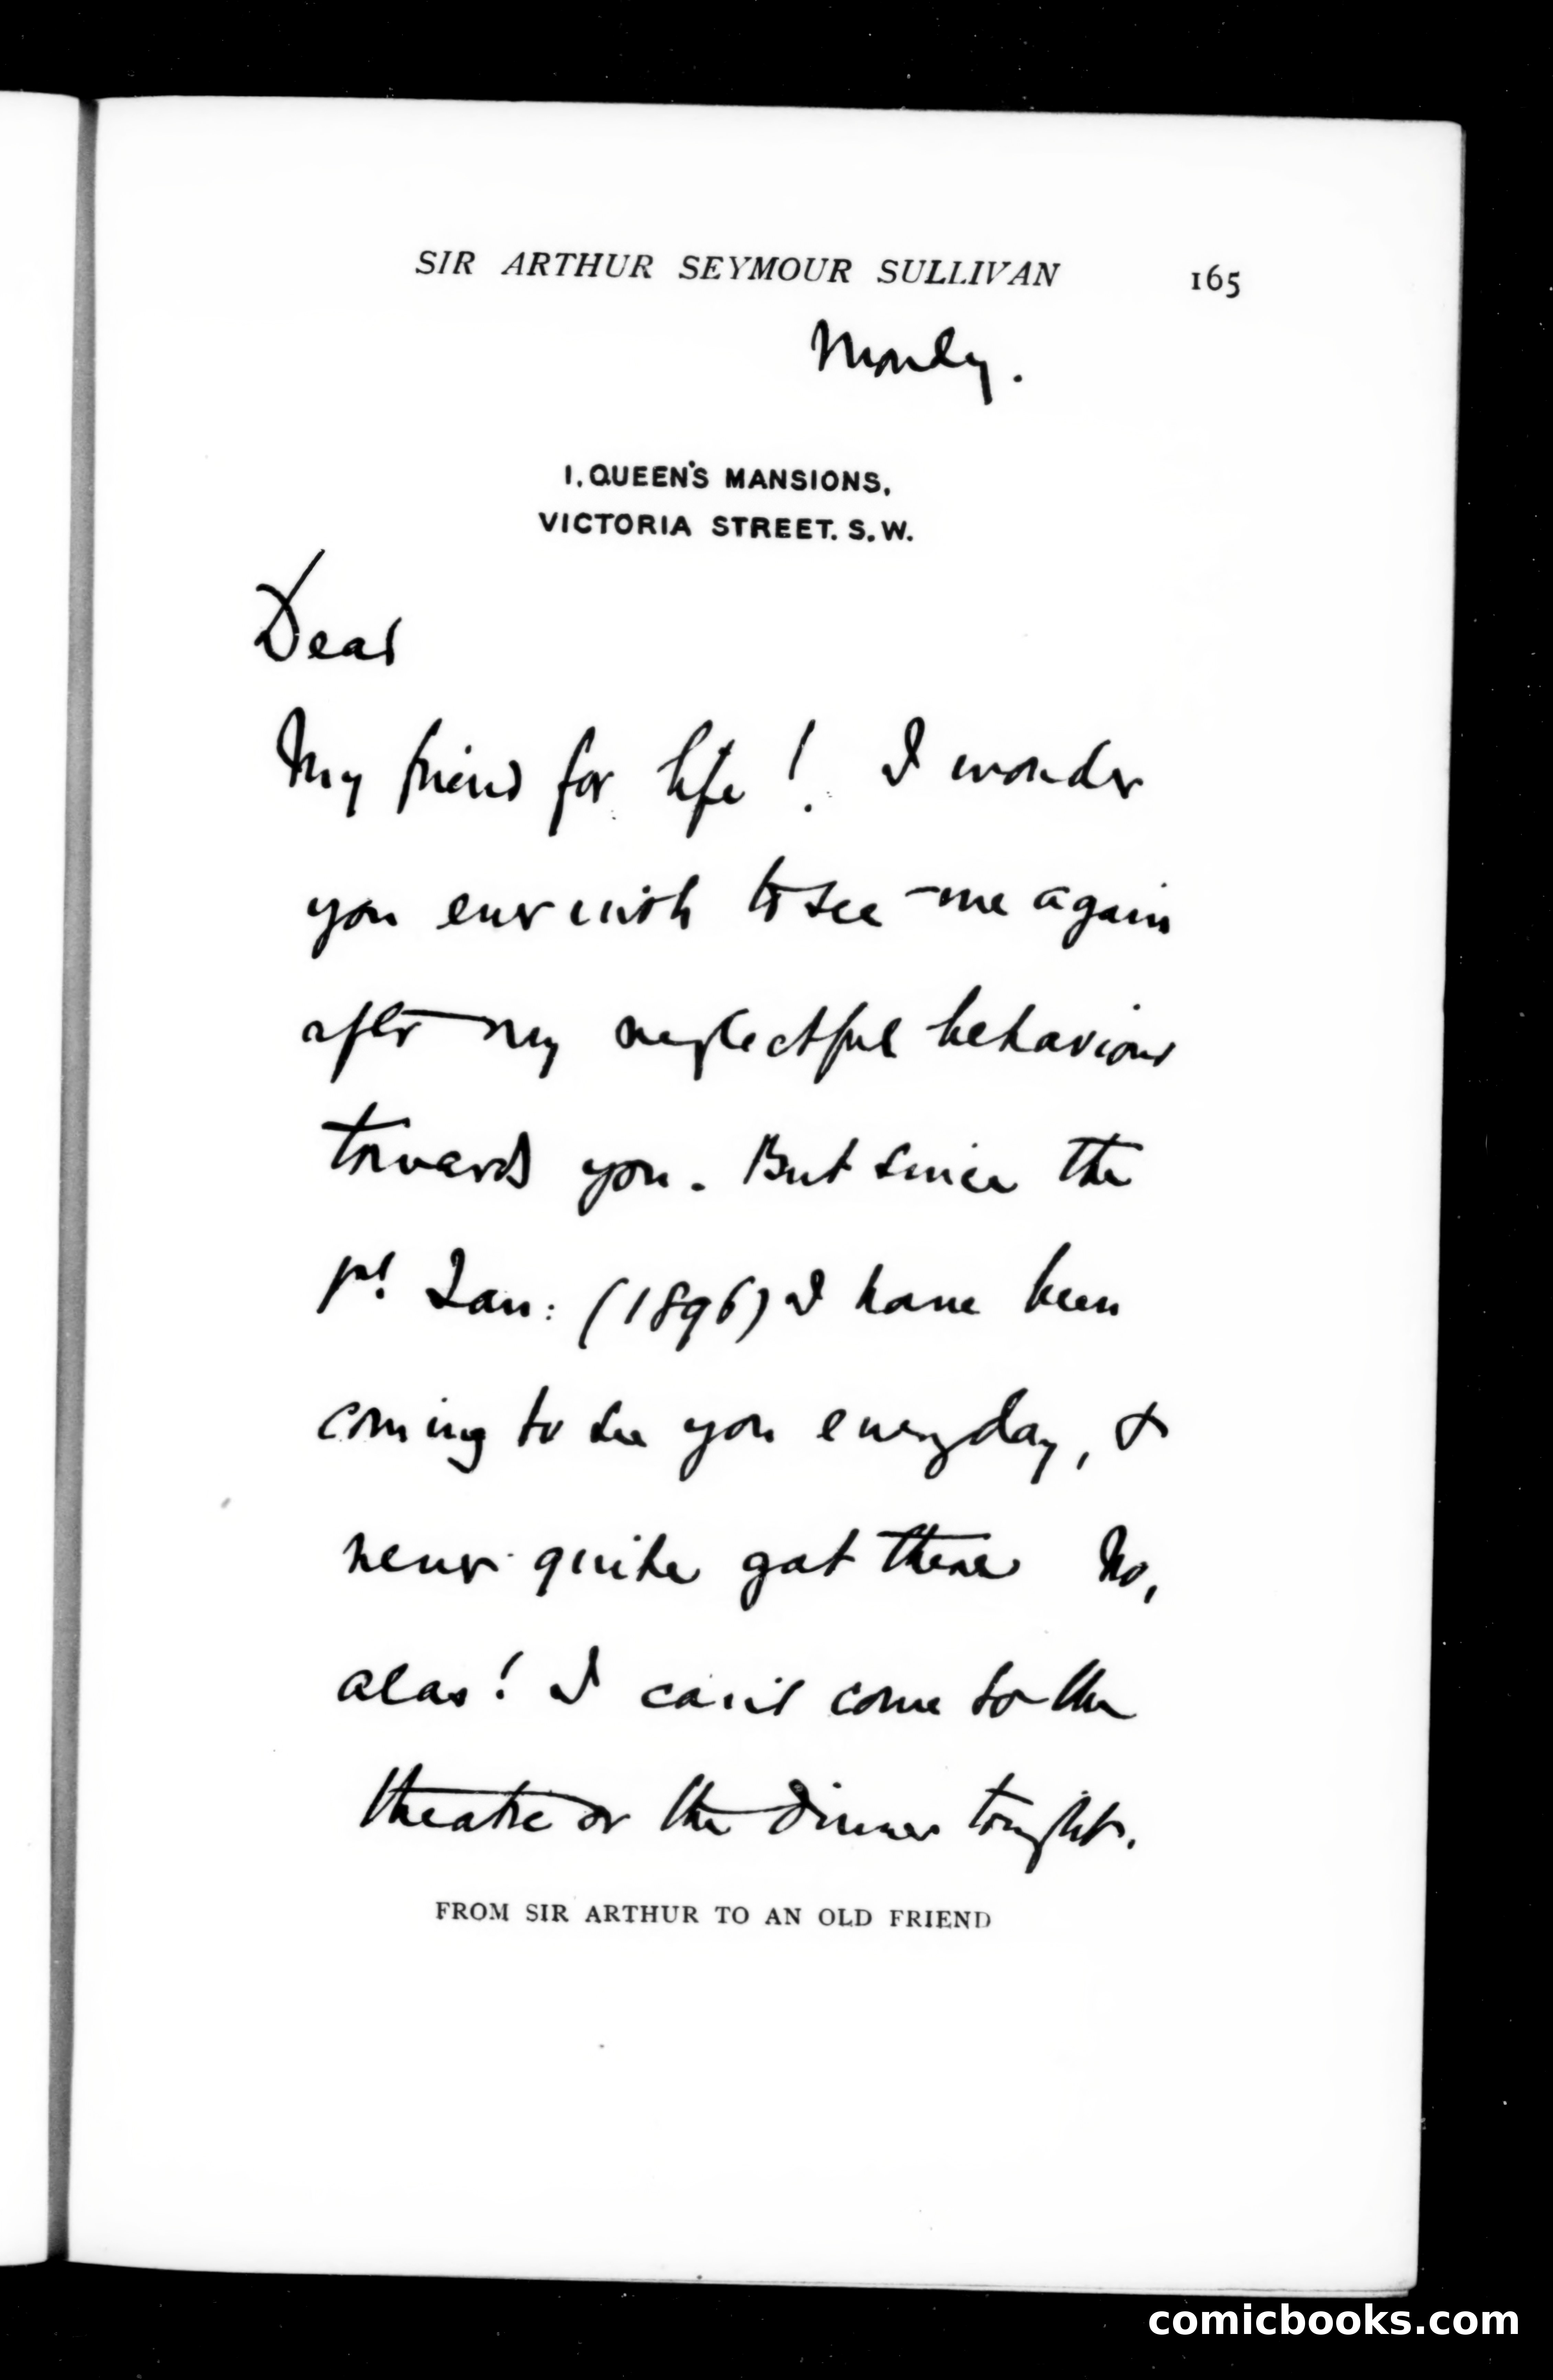 SIR ARTHUR SEYMOUR SULLIVAN 165
Monday.
1, QUEEN'S MANSIONS,
VICTORIA STREET. S.W.
Dear
My friend for life! I wonder
you ever wish to see me again
after my neglectful behaviour
towards you. But since the
1st Jan: (1896) I have been
coming to see you everyday, &
never quite got there No,
alas! I can't come to the
theatre or the dinner tonight.
FROM SIR ARTHUR TO AN OLD FRIEND
comicbooks.com